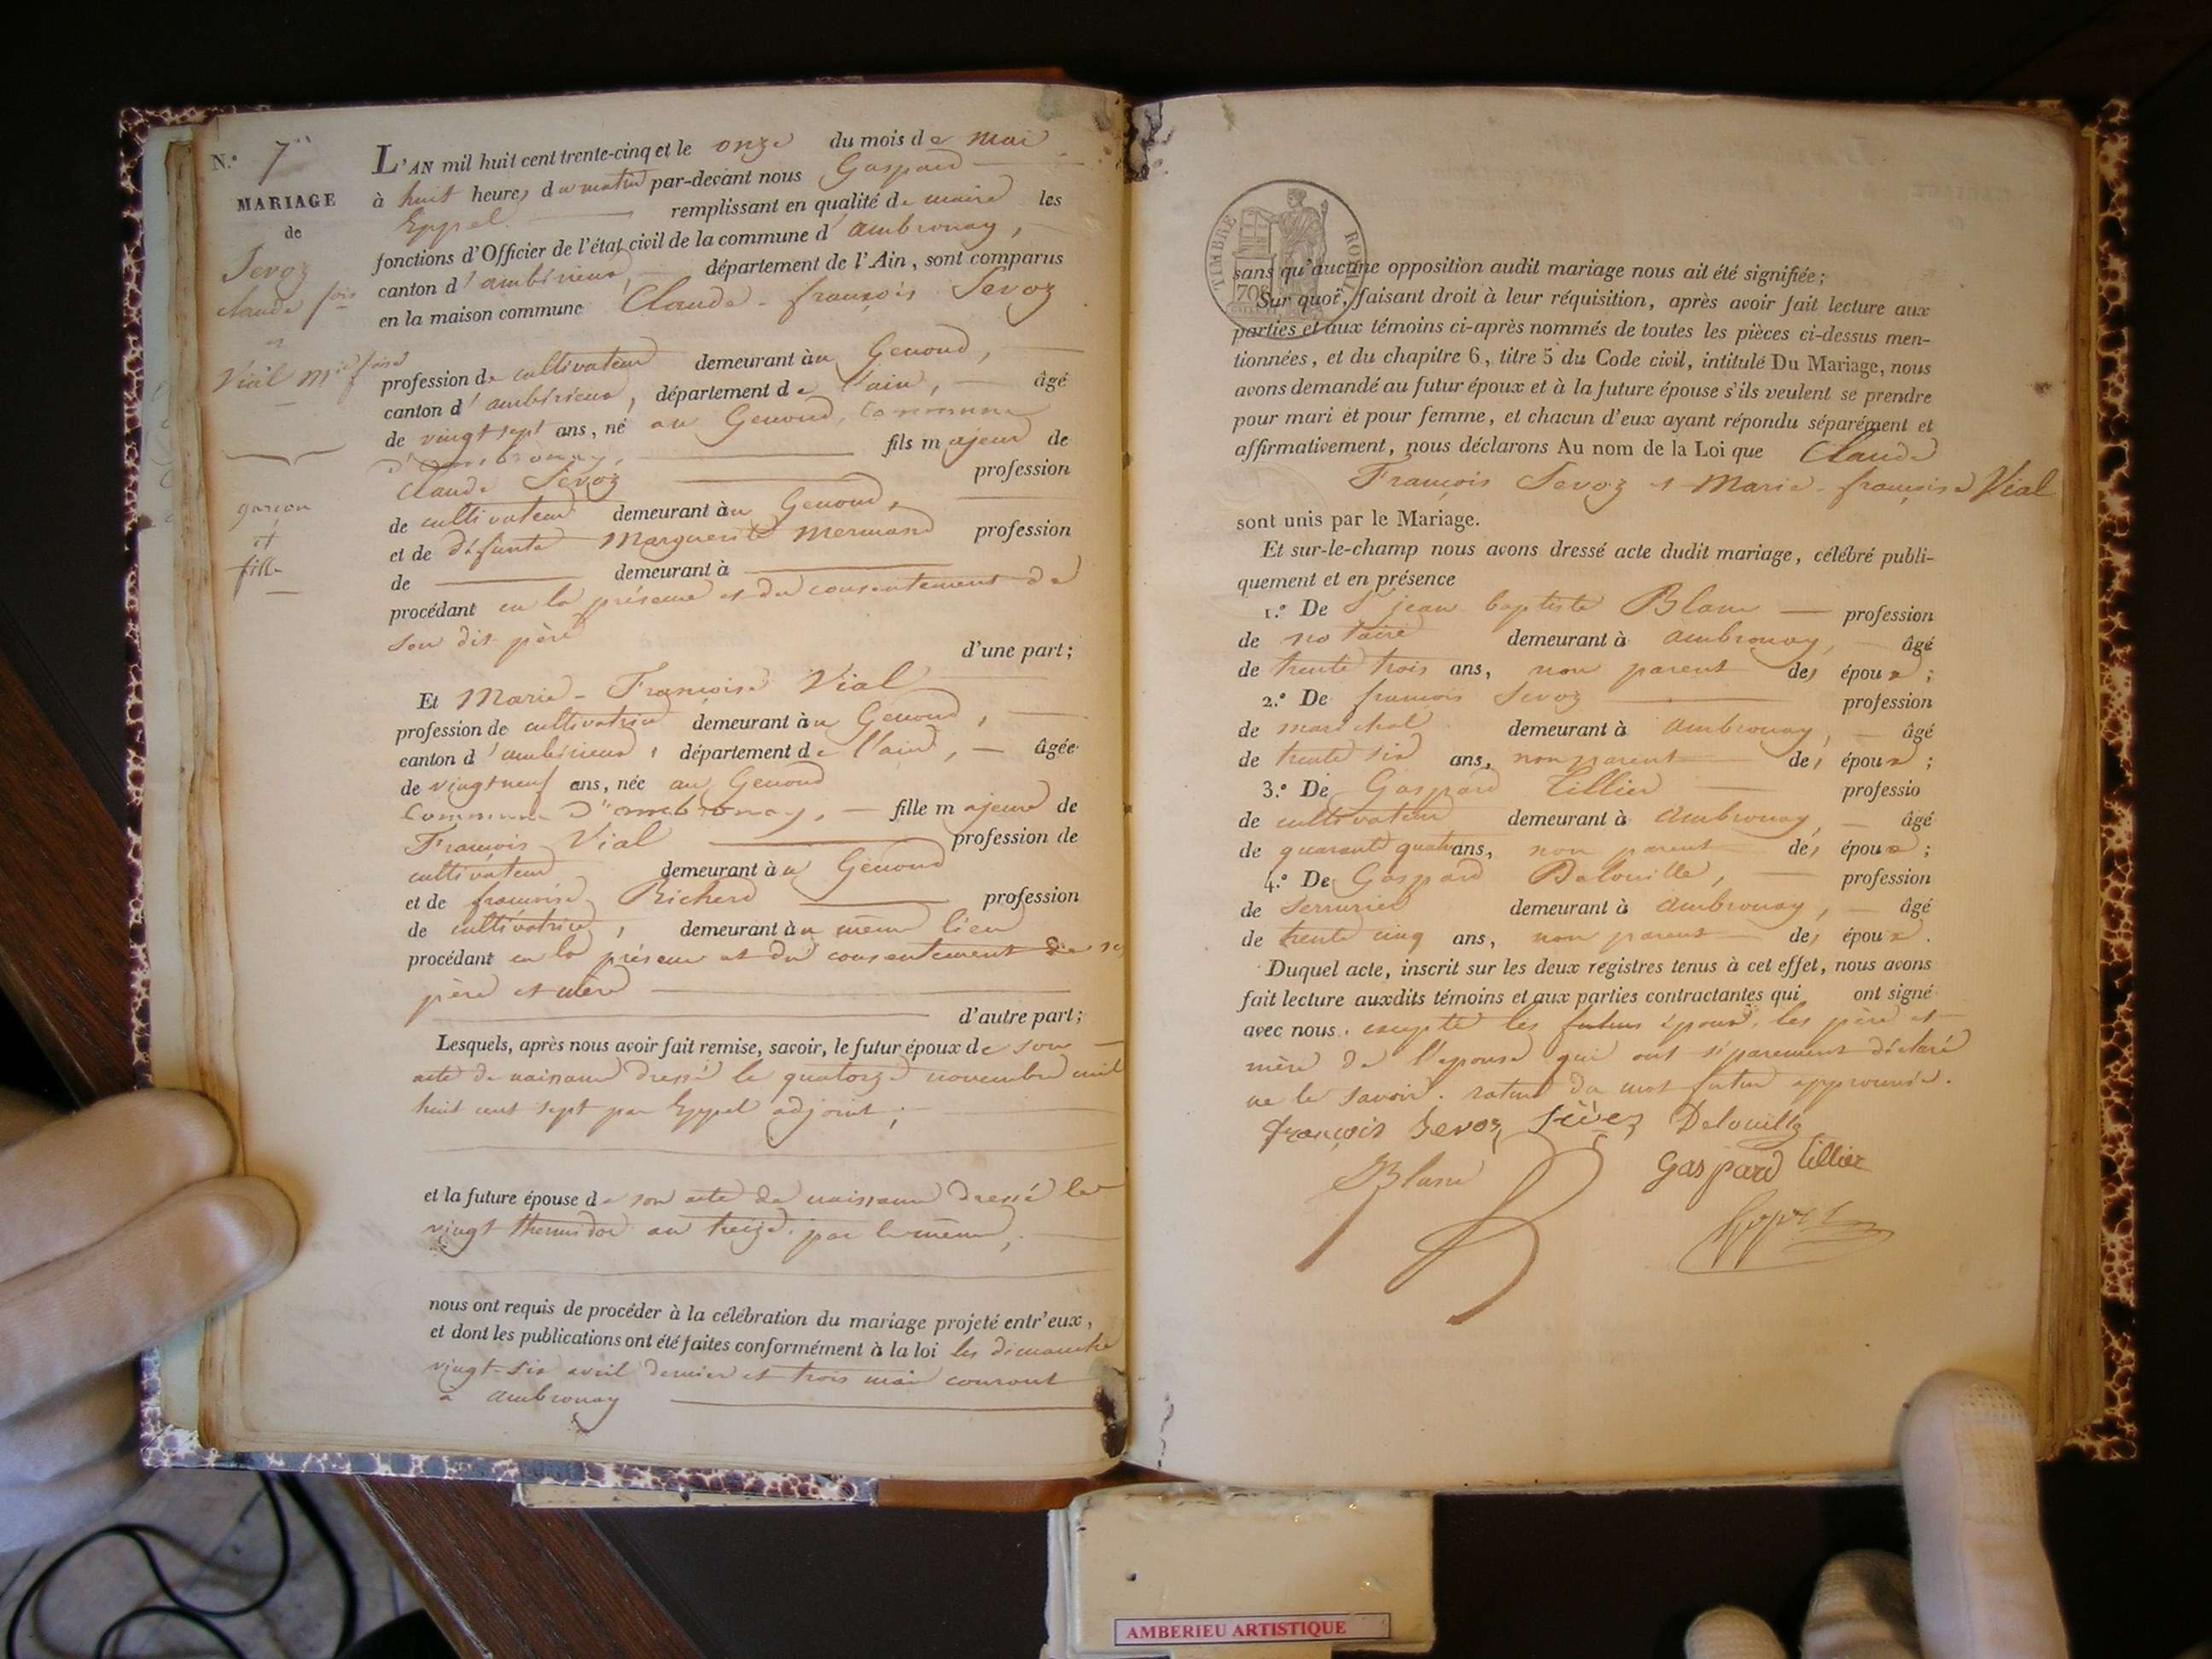 N.° 7
MARIAGE
de
Sevoz
claude fois
et
Vial Mie foise
garçon
et
fille
L'AN mil huit cent trente-cinq et le onze du mois de mai
à huit heures du matin par-devant nous Gaspard
Eppel remplissant en qualité de maire les
fonctions d'Officier de l'état civil de la commune d'ambronay,
canton d'ambérieux, département de l'Ain, sont comparus
en la maison commune Claude-françois Sevoz
profession de cultivateur demeurant au Genoud,
canton d'ambérieux, département de l'ain, âgé
de vingt sept ans, né au Genoud, Commune
d'ambronay, fils majeur de
Claude Sevoz profession
de cultivateur demeurant au Genoud,
et de défunte Marguerite Mermand profession
de demeurant à
procédant en la présence et du consentement de
son dit père
d'une part;
Et Marie-Françoise Vial
profession de cultivatrice demeurant au Genoud,
canton d'ambérieux, département de l'ain, âgée
de vingt neuf ans, née au Genoud
Commune d'ambronay, fille majeure de
François Vial profession de
cultivateur demeurant au Genoud
et de françoise Richerd profession
de cultivatrice, demeurant au même lieu
procédant en la présence et du consentement de ses
père et mère
d'autre part;
Lesquels, après nous avoir fait remise, savoir, le futur époux de son
acte de naissance dressé le quatorze novembre mil
huit cent sept par Eppel adjoint;
et la future épouse de son acte de naissance dressé le
vingt thermidor an treize par le même,
nous ont requis de procéder à la célébration du mariage projeté entr'eux,
et dont les publications ont été faites conformément à la loi les dimanche
vingt-six avril dernier et trois mai courant
à ambronay
TIMBRE ROYAL
70
sans qu'aucune opposition audit mariage nous ait été signifiée;
Sur quoi, faisant droit à leur réquisition, après avoir fait lecture aux
parties et aux témoins ci-après nommés de toutes les pièces ci-dessus men-
tionnées, et du chapitre 6, titre 5 du Code civil, intitulé Du Mariage, nous
avons demandé au futur époux et à la future épouse s'ils veulent se prendre
pour mari et pour femme, et chacun d'eux ayant répondu séparément et
affirmativement, nous déclarons Au nom de la Loi que Claude
François Sevoz et Marie-françoise Vial
sont unis par le Mariage.
Et sur-le-champ nous avons dressé acte dudit mariage, célébré publi-
quement et en présence
1.° De Sr jean baptiste Blanc profession
de notaire demeurant à ambronay, âgé
de trente trois ans, non parent des époux;
2.° De francois Sevoz profession
de maréchal demeurant à ambronay, âgé
de trente six ans, non parent des époux;
3.° De Gaspard Tillier professio
de cultivateur demeurant à ambronay, âgé
de quarante quatre ans, non parent des époux;
4.° De Gaspard Delouille, profession
de Serrurier demeurant à ambronay, âgé
de trente cinq ans, non parent des époux.
Duquel acte, inscrit sur les deux registres tenus à cet effet, nous avons
fait lecture auxdits témoins et aux parties contractantes qui ont signé
avec nous. excepté les futurs époux, les père et
mère de l'épouse qui ont séparément déclaré
ne le savoir. rature du mot futur approuvée.
françois Sevoz Delouille
Blanc Gaspard tillier
Eppel
AMBERIEU ARTISTIQUE